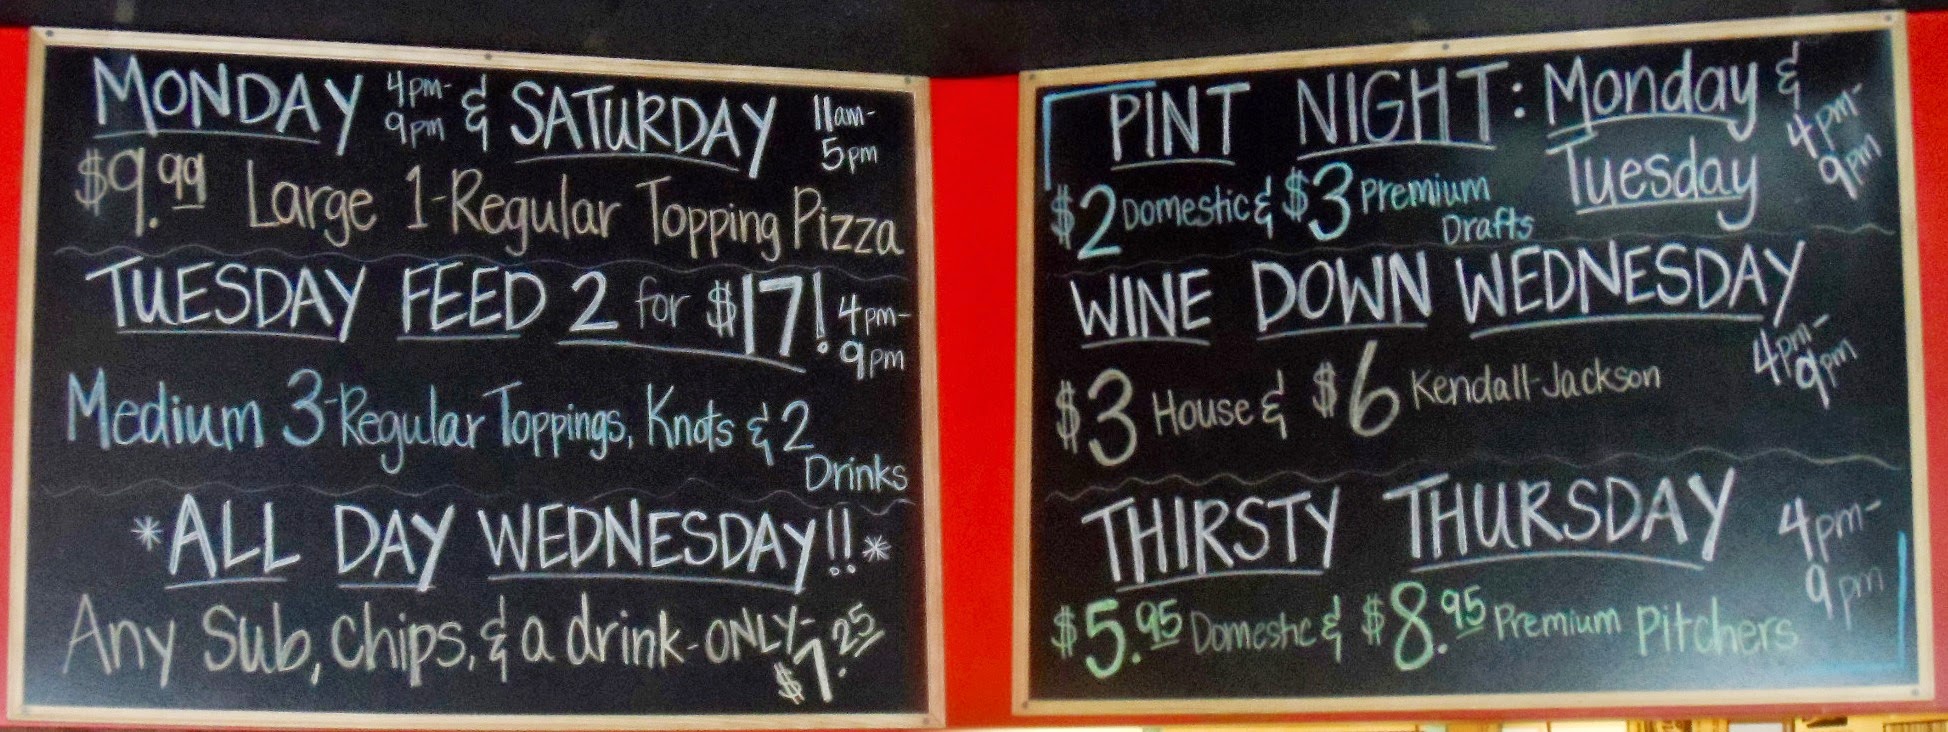 MONDAY 4pm-9pm & SATURDAY 11am-5pm
$9.99 Large 1-Regular Topping Pizza
TUESDAY FEED 2 for $17! 4pm-9pm
Medium 3-Regular Toppings, Knots & 2
Drinks
*ALL DAY WEDNESDAY!!*
Any Sub, Chips, & a drink-ONLY-
$7.25
PINT NIGHT: Monday &
Tuesday 4pm-9pm
$2 Domestic & $3 Premium
Drafts
WINE DOWN WEDNESDAY
4pm-9pm
$3 House & $6 Kendall-Jackson
THIRSTY THURSDAY 4pm-9pm
$5.95 Domestic & $8.95 Premium Pitchers